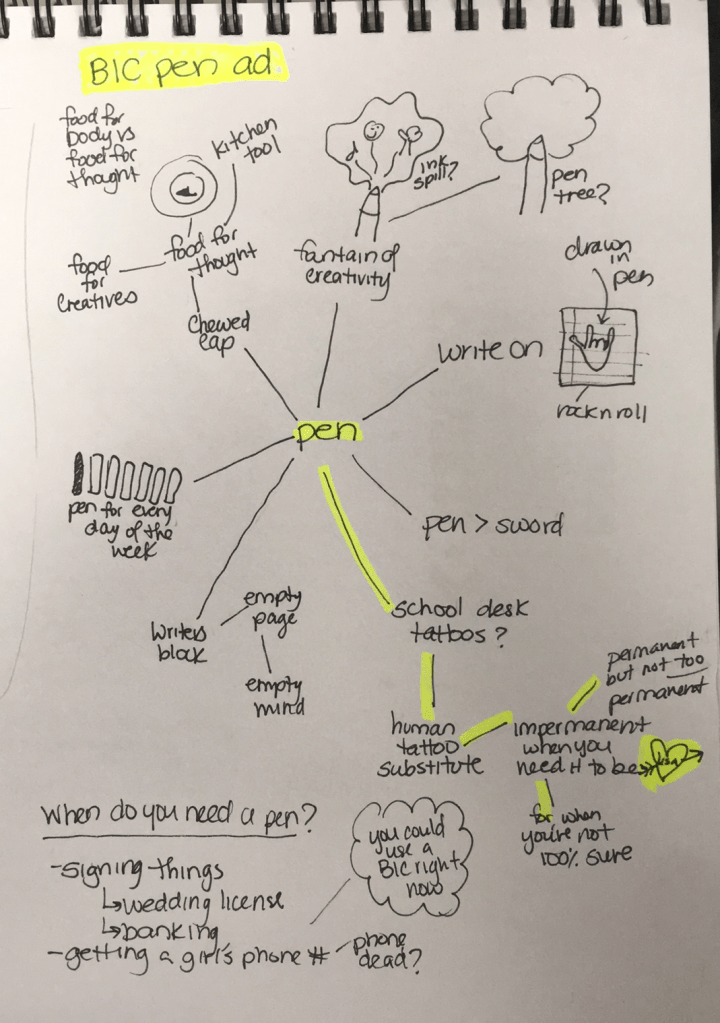 BIC pen ad.
food for
body vs
food for
thought
kitchen
tool
food for
thought
food
for
creatives
chewed
cap
ink
spill?
fantain of
creativity
pen
tree?
drawn
in
pen
write on
rock n roll
pen
pen for every
day of the
week
pen > sword
writers
block
empty
page
empty
mind
school desk
tattoos?
human
tattoo
substitute
impermanent
when you
need it to be
permanent
but not too
permanent
for when
you're not
100% sure
When do you need a pen?
-signing things
↳wedding license
↳banking
-getting a girl's phone #
phone
dead?
you could
use a
BIC right
now